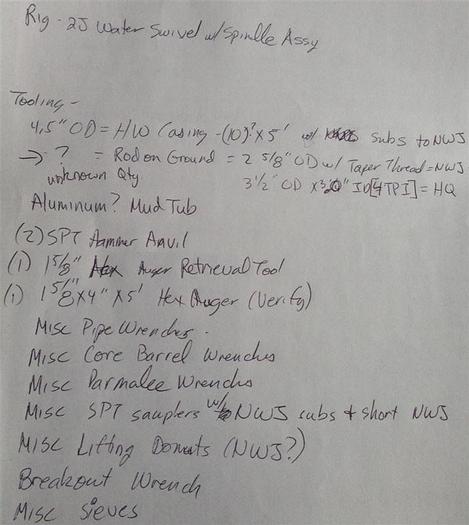 Rig - 2J Water Swivel w/ Spindle Assy
Tooling -
4.5" OD = HW Casing - (10)? x 5' w/ subs to NWJ
→ ? = Rod on Ground = 2 5/8" OD w/ Taper Thread = NWJ
unknown Qty 3 1/2" OD x 3" ID [4 TPI] = HQ
Aluminum? Mud Tub
(2) SPT Hammer Anvil
(1) 1 5/8" Hex Auger Retrieval Tool
(1) 1 5/8" x 4" x 5' Hex Auger (Verify)
Misc Pipe Wrenches.
Misc Core Barrel Wrenches
Misc Parmalee Wrenches
Misc SPT samplers w/ NWJ subs + short NWJ
Misc Lifting Donuts (NWJ?)
Breakout Wrench
Misc Sieves